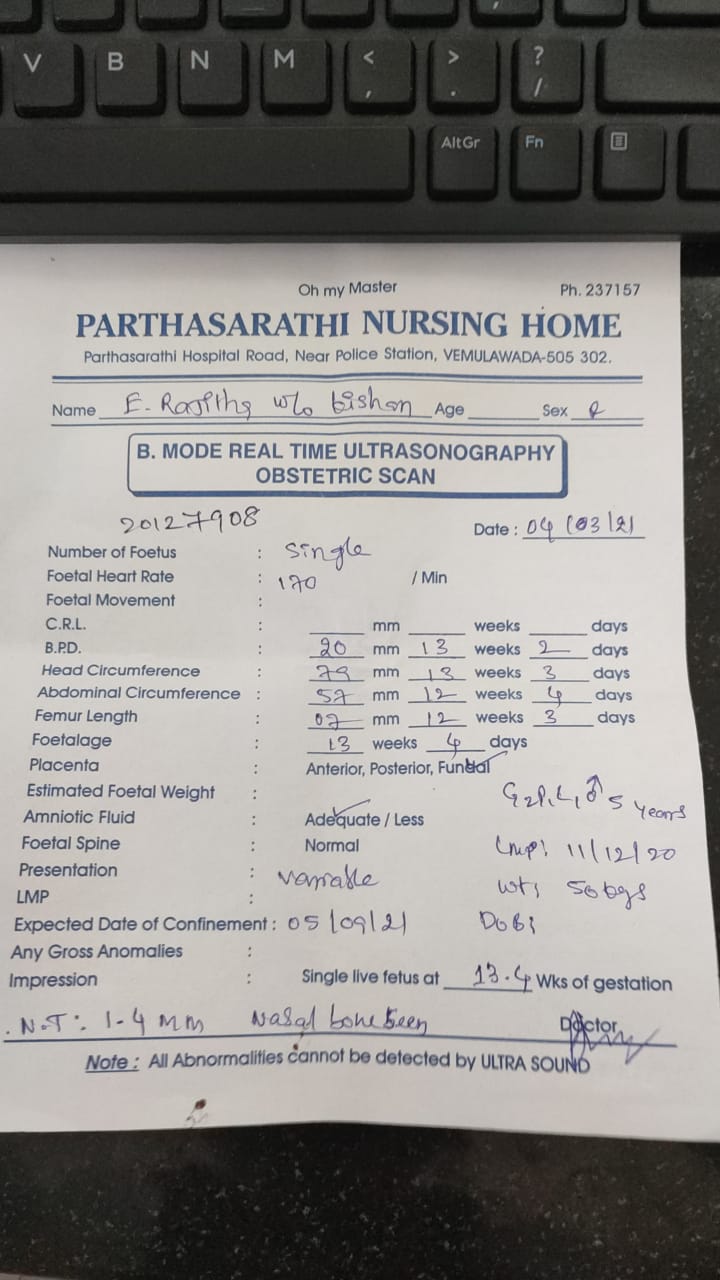 V B N M < , > . ? /
AltGr Fn
Oh my Master Ph. 237157
PARTHASARATHI NURSING HOME
Parthasarathi Hospital Road, Near Police Station, VEMULAWADA-505 302.
Name E. Rajitha w/o Age Sex
B. MODE REAL TIME ULTRASONOGRAPHY
OBSTETRIC SCAN
20127908
Date : 04/03/21
Number of Foetus : Single
Foetal Heart Rate : 170 / Min
Foetal Movement :
C.R.L. : mm weeks days
B.P.D. : 20 mm 13 weeks 2 days
Head Circumference : 79 mm 13 weeks 3 days
Abdominal Circumference : 57 mm 12 weeks 4 days
Femur Length : 07 mm 12 weeks 3 days
Foetalage : 13 weeks 4 days
Placenta : Anterior, Posterior, Fundal
Estimated Foetal Weight : G2P1L1 ♂ 5 years
Amniotic Fluid : Adequate / Less
Foetal Spine : Normal Lmp: 11/12/20
Presentation : variable
LMP : wt: 50kgs
Expected Date of Confinement : 05/09/21 DOB:
Any Gross Anomalies :
Impression : Single live fetus at 13.4 Wks of gestation
N.T: 1.4 mm Nasal bone seen Doctor
Note : All Abnormalities cannot be detected by ULTRA SOUND